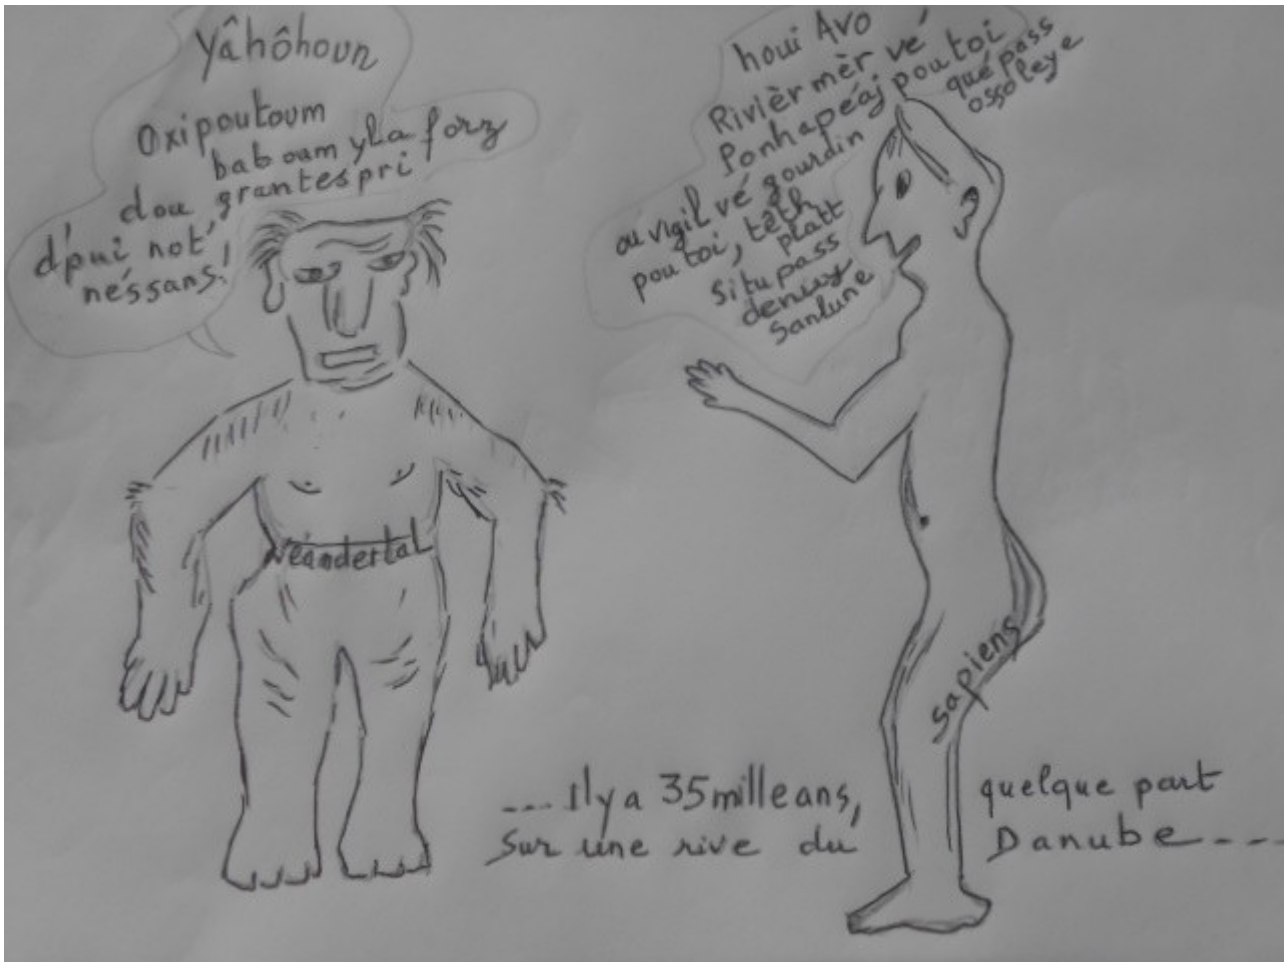 Yâhôhoun
Oxipoutoum
baboum yLa forz
dou grantéspri
d'pui not'
néssans!
houi Avo
Rivièr mèr vé
Ponhapéaj poutoi
qué pass
osso leye
ou vigil vé gourdin
pou toi, têth
platt
si tu pass
denwy
sanlune
Néandertal
sapiens
--- Il y a 35 mille ans, quelque part
sur une rive du Danube ---